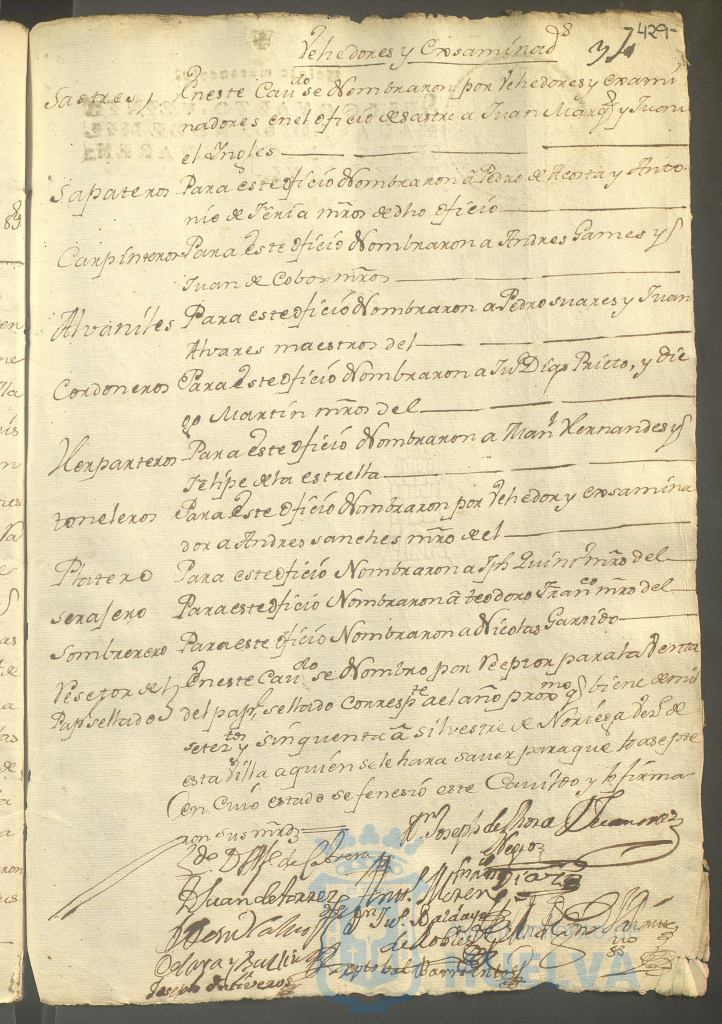 429
Vehedores y Exsaminad.s
Sastres, En este Cav.do se Nombraron por Vehedores y exami
nadores en el oficio de sastre a Juan Marq.z y Juan
el Ingles
Sapateros Para este oficio Nombraron â Pedro de Acosta y Anto
nio de Feria mros de dho oficio
Carpinteros Para Este oficio Nombraron a Andres Games y
Juan de Cobos mros
Alvaniles Para este oficio Nombraron a Pedro suares y Juan
Alvares maestros del
Cordoneros Para Este oficio Nombraron a Ju.o Dias Prieto, y Die
go Martin mros del
Herparteros Para este oficio Nombraron a Man.l Hernandes y
Felipe de la estrella
toneleros Para Este oficio Nombraron por Vehedor y exsamina
dor a Andres sanches mro de el
Platero Para este oficio Nombraron a Jph Quin mro del
serajero Para este oficio Nombraron â teodoro Fran.co mro del
Sombrerero Para este oficio Nombraron a Nicolas Garrido
Resetor del En este Cav.do se Nombro por Reseptor para la Venta
Pap.l sellado del pap.l sellado Corresp.te a el año prox.mo q biene de mil
setes.tos y sinquenta â silvestre de Noriega Vz.o de
esta Villa a quien se le hara saver para que lo asepte
en cuio estado se fenesió este Cavildo y lo firma
ron sus mrds
D.n Joseph de Mora
D. Juan de torres
HUELVA